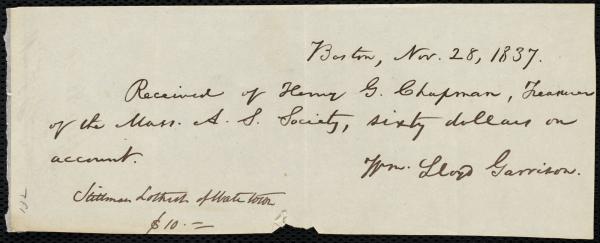 Boston, Nov. 28, 1837.
Received of Henry G. Chapman, Treasurer
of the Mass. A. S. Society, sixty dollars on
account.
Wm. Lloyd Garrison.
Stillman Lothrop of Watertown
$10.—